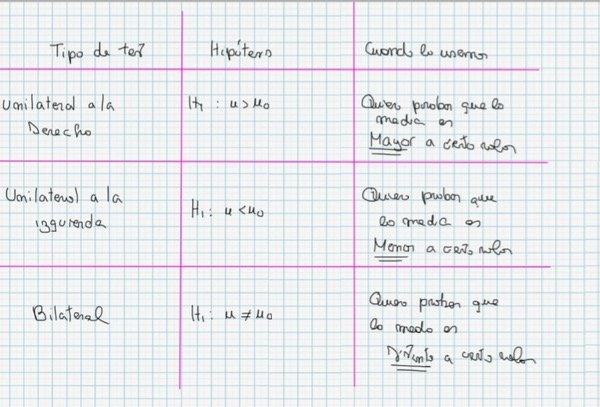 Tipo de test
Hipótesis
Cuando lo usamos
Unilateral a la
Derecha
H₁ : u > u₀
Quiero probar que la
media es
Mayor a cierto valor
Unilateral a la
izquierda
H₁ : u < u₀
Quiero probar que
la media es
Menor a cierto valor
Bilateral
H₁ : u ≠ u₀
Quiero probar que
la media es
Distinto a cierto valor